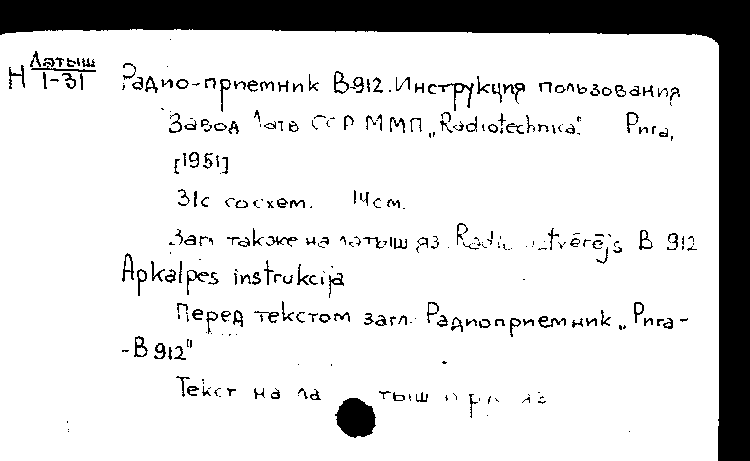 Н Латыш
1-31
Радио-приемник В-912. Инструкция пользования
Завод Латв ССР ММП „Radiotechnica". Рига,
[1951]
31с со схем. 14см.
Загл также на латыш яз. Radio uztvērējs B 912
Apkalpes instrukcija
Перед текстом загл. Радиоприемник „Рига-
-В 912"
Текст на латыш и рус яз